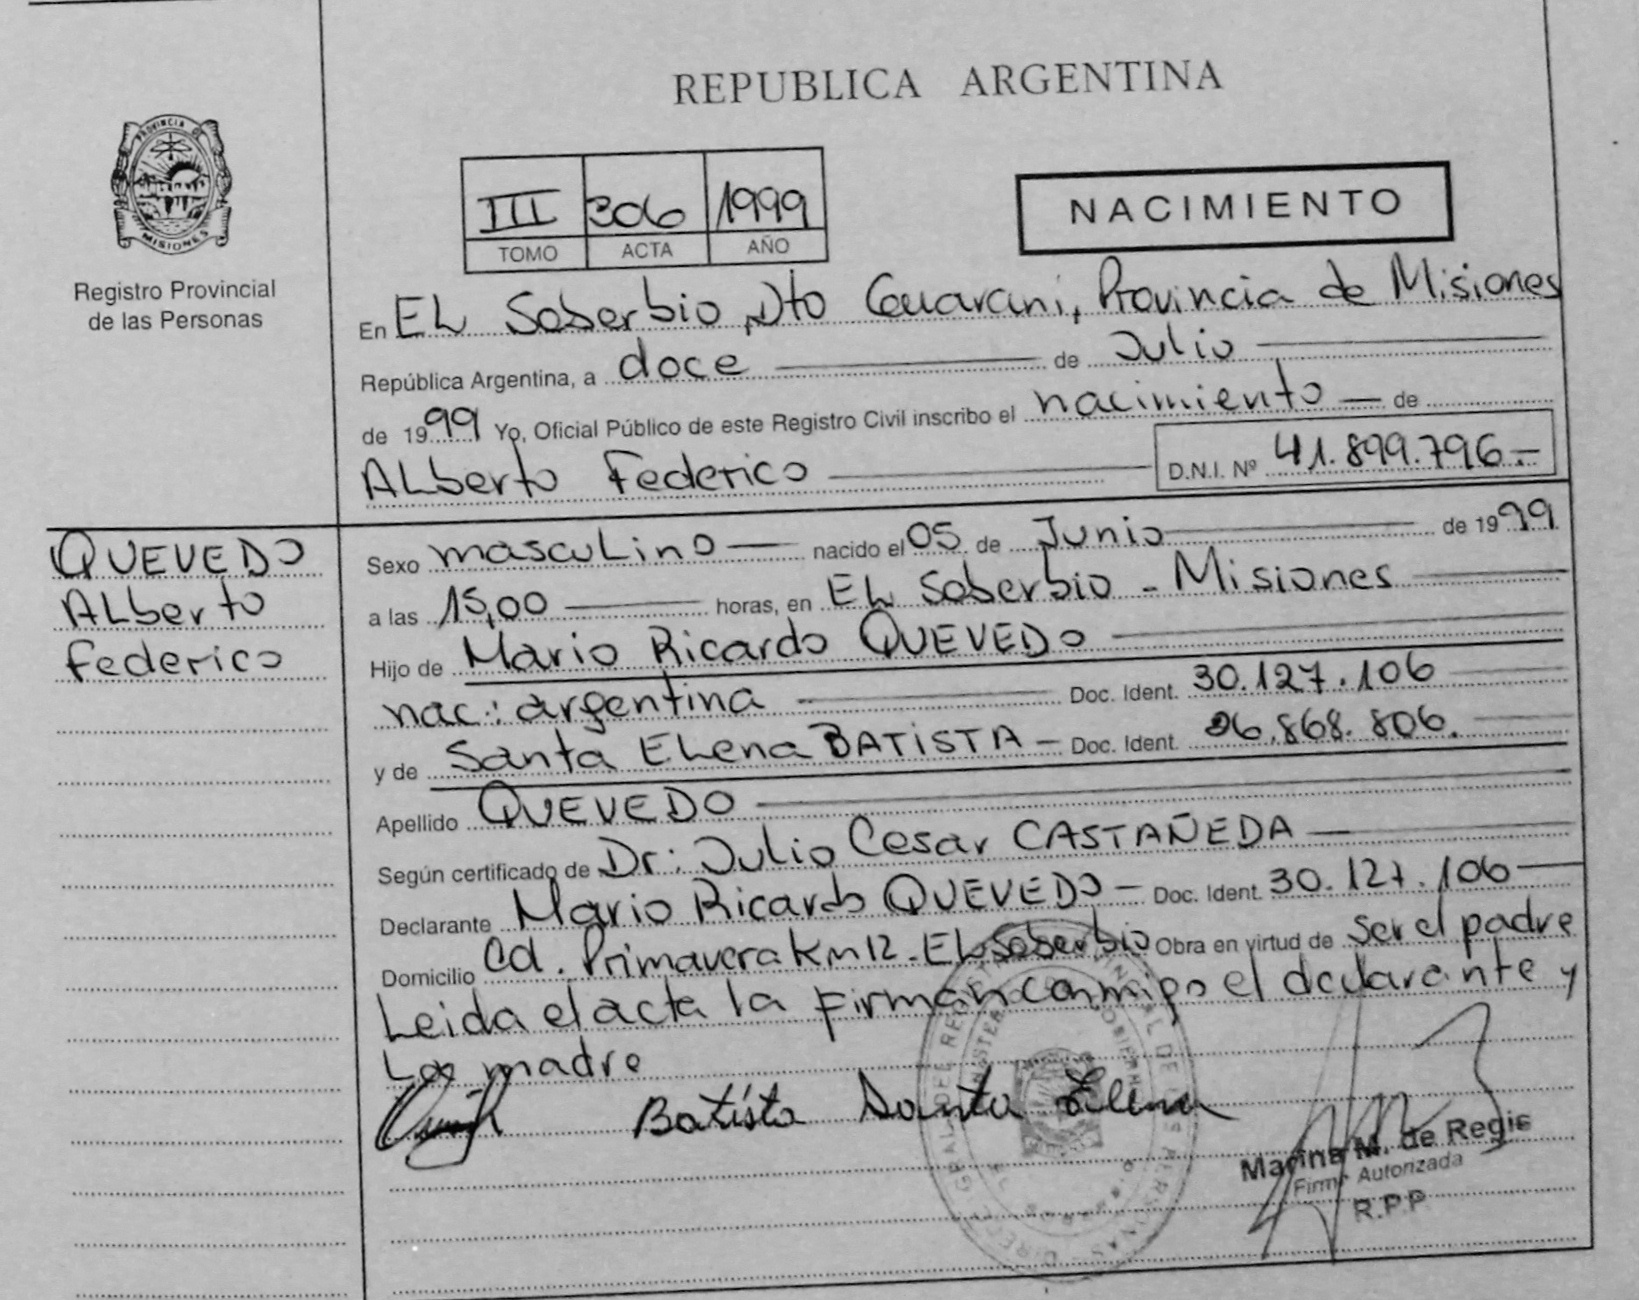 REPUBLICA ARGENTINA
PROVINCIA DE
MISIONES
Registro Provincial
de las Personas
III 306 1999
TOMO ACTA AÑO
NACIMIENTO
En EL Soberbio, Dto Guarani, Provincia de Misiones
República Argentina, a doce de Julio
de 1999 Yo, Oficial Público de este Registro Civil inscribo el nacimiento de
ALberto Federico D.N.I. Nº 41.899.796.-
QUEVEDO
ALberto
Federico
Sexo mascuLino nacido el 05 de Junio de 1999
a las 15,00 horas, en EL Soberbio - Misiones
Hijo de Mario Ricardo QUEVEDO
nac.: argentina Doc. Ident. 30.127.106
y de Santa ELena BATISTA - Doc. Ident. 06.868.806.
Apellido QUEVEDO
Según certificado de Dr: Julio Cesar CASTAÑEDA
Declarante Mario Ricardo QUEVEDO - Doc. Ident. 30.127.106
Domicilio Cd. Primavera Km 12 - EL Soberbio Obra en virtud de ser el padre
Leida el acta la firman conmigo el declarante y
La madre
Batista Santa Elena
Marina M. de Regis
Firma Autorizada
R.P.P